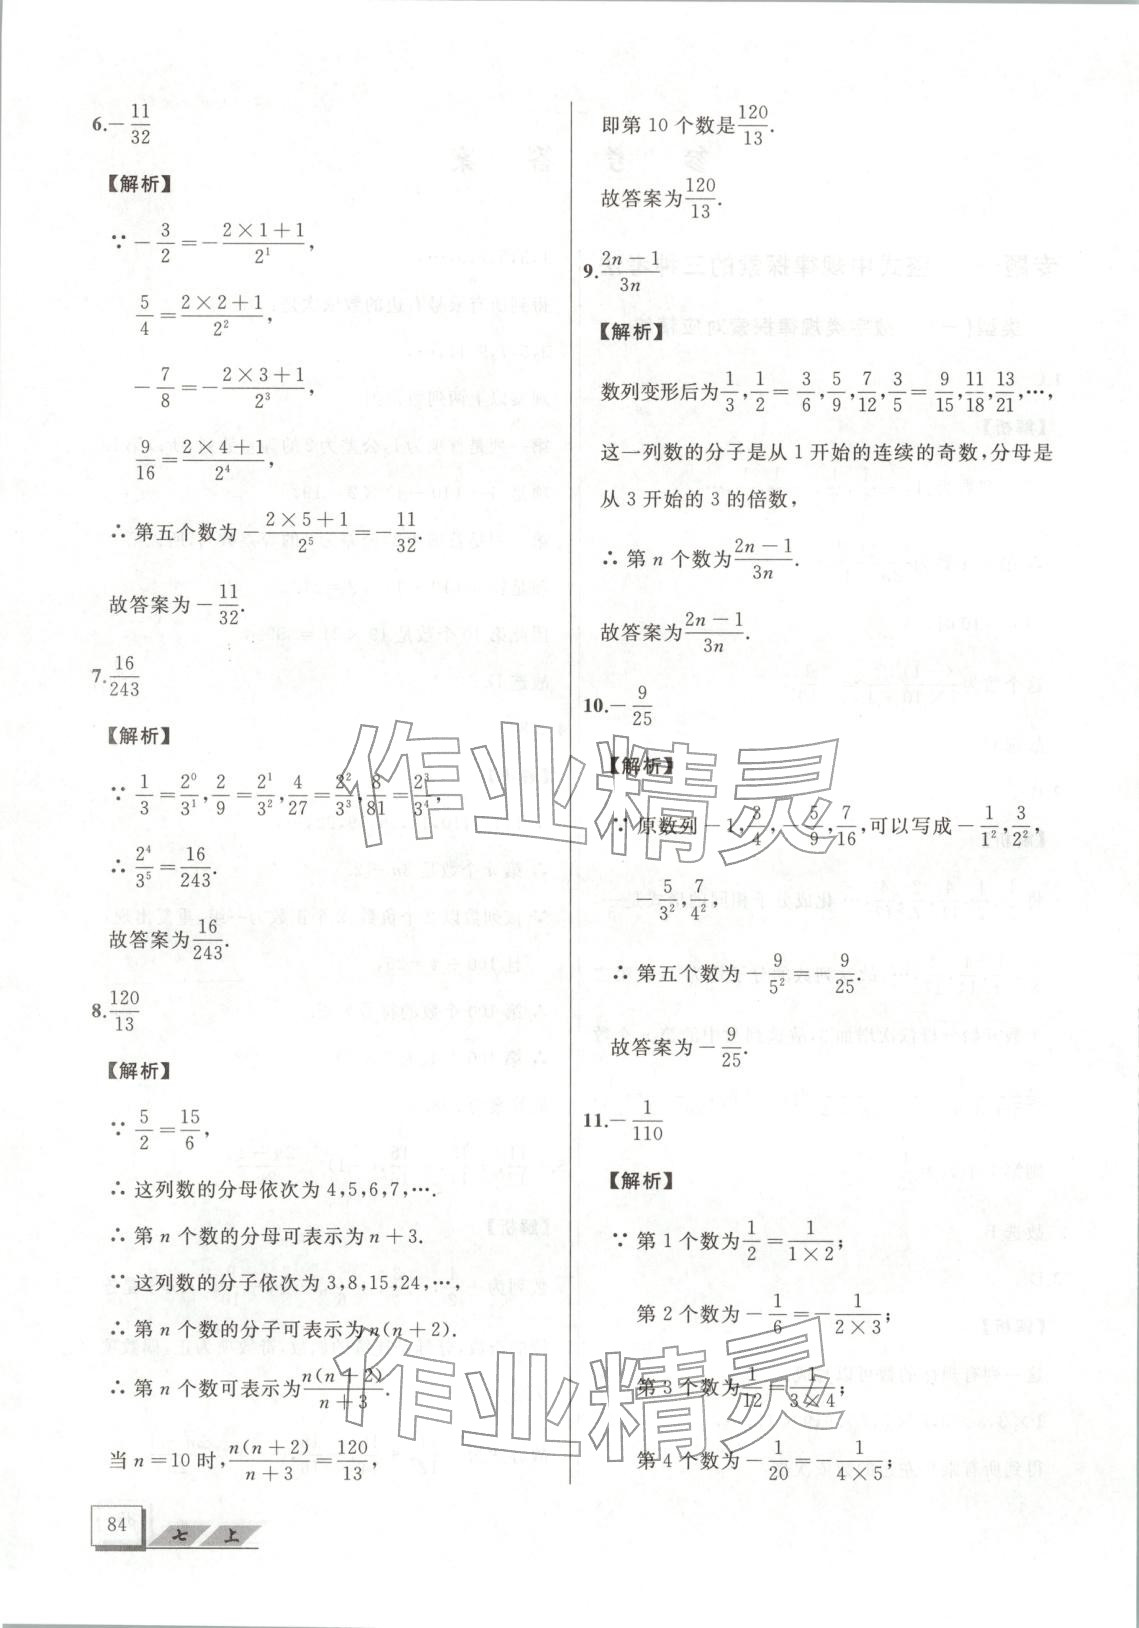 6.－11/32
【解析】
∵－3/2＝－(2×1＋1)/2¹，
5/4＝(2×2＋1)/2²，
－7/8＝－(2×3＋1)/2³，
9/16＝(2×4＋1)/2⁴，
∴第五个数为－(2×5＋1)/2⁵＝－11/32.
故答案为－11/32.
7.16/243
【解析】
∵1/3＝2⁰/3¹，2/9＝2¹/3²，4/27＝2²/3³，8/81＝2³/3⁴，
∴2⁴/3⁵＝16/243.
故答案为16/243.
8.120/13
【解析】
∵5/2＝15/6，
∴这列数的分母依次为4,5,6,7,….
∴第n个数的分母可表示为n＋3.
∵这列数的分子依次为3,8,15,24,…，
∴第n个数的分子可表示为n(n＋2).
∴第n个数可表示为n(n＋2)/(n＋3).
当n＝10时，n(n＋2)/(n＋3)＝120/13，
84
七 上
即第10个数是120/13.
故答案为120/13.
9.(2n－1)/3n
【解析】
数列变形后为1/3，1/2＝3/6，5/9，7/12，3/5＝9/15，11/18，13/21，…，
这一列数的分子是从1开始的连续的奇数，分母是
从3开始的3的倍数，
∴第n个数为(2n－1)/3n.
故答案为(2n－1)/3n.
10.－9/25
【解析】
∵原数列－1，3/4，－5/9，7/16，可以写成－1/1²，3/2²，
－5/3²，7/4²，
∴第五个数为－9/5²＝－9/25.
故答案为－9/25.
11.－1/110
【解析】
∵第1个数为1/2＝1/(1×2)；
第2个数为－1/6＝－1/(2×3)；
第3个数为1/12＝1/(3×4)；
第4个数为－1/20＝－1/(4×5)；
作业精灵
作业精灵